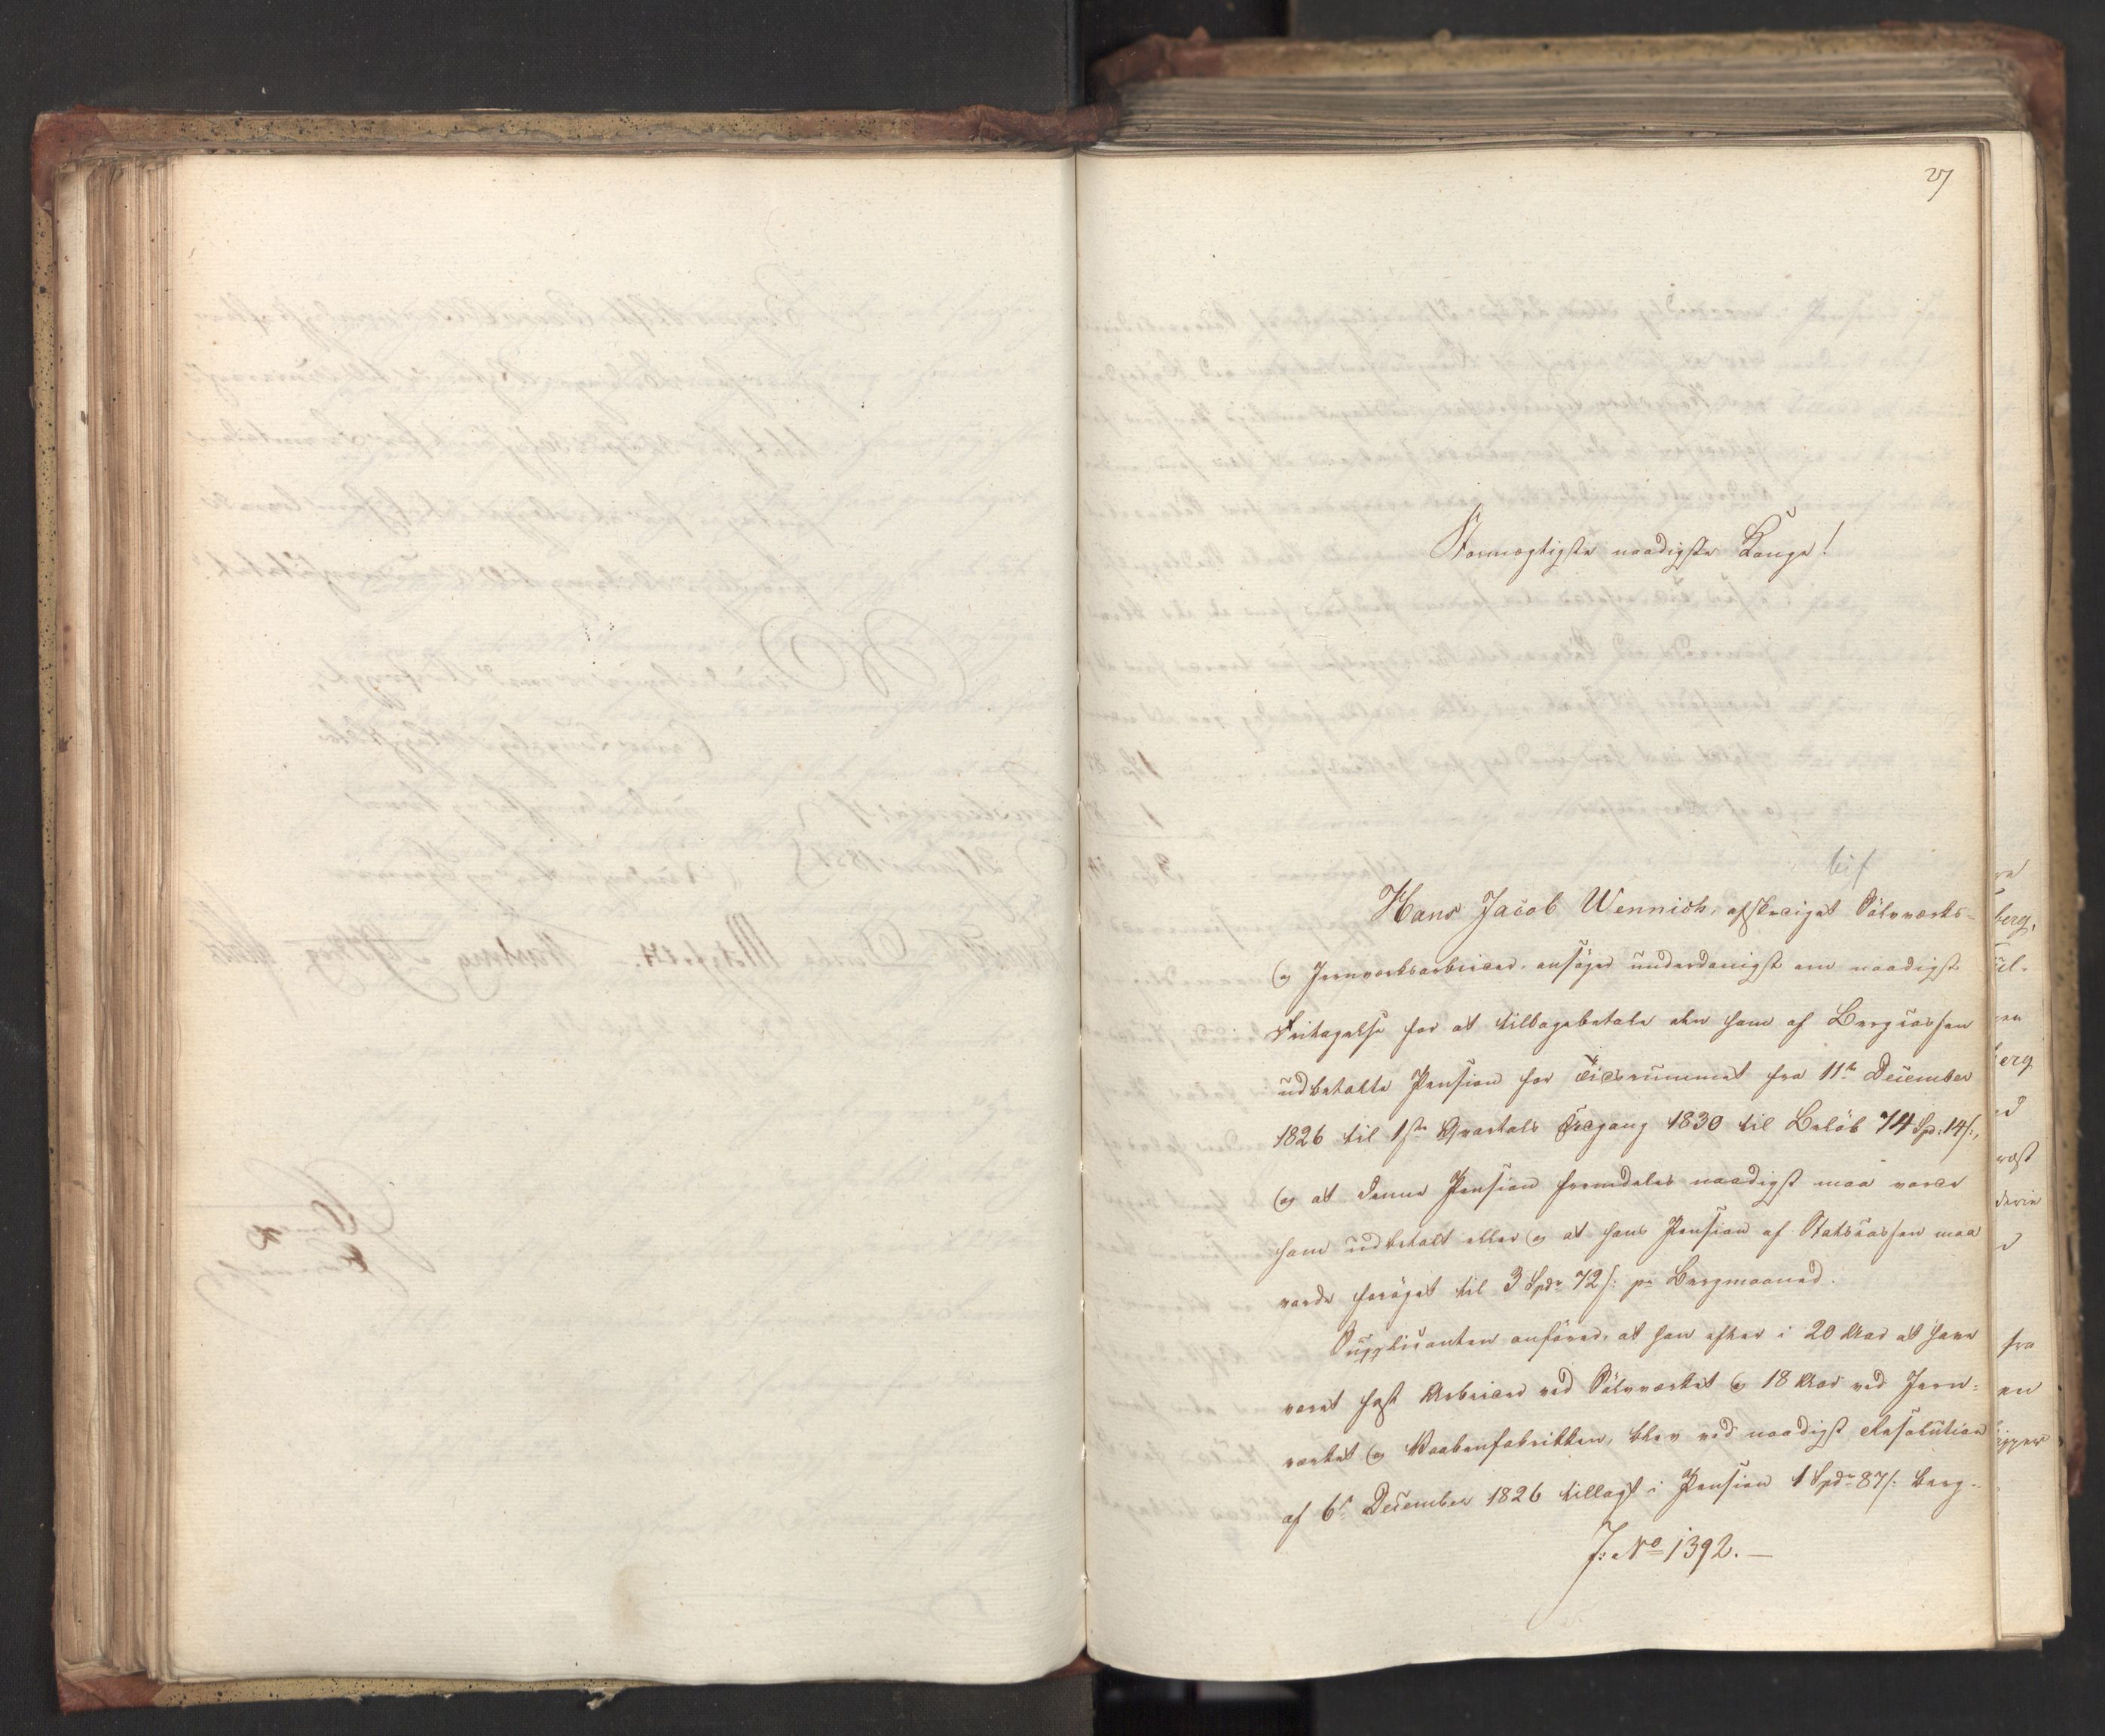 27
Stormægtigste naadigste Konge!
bif
Hans Jacob Wennich, afskediget Sölvværks-
og Jernværksarbeider, ansöger underdanigst om naadigst
Fritagelse for at tilbagebetale den ham af Bergcassen
udbetalte Pension for Tidsrummet fra 11te December
1826 til 1ste Qvartals Udgang 1830 til Belöb 74 Spd: 14 s:,
og at denne Pension fremdeles naadigst maa vorde
ham udbetalt eller og at hans Pension af Statscassen maa
vorde foröget til 3 Spdr 72 s: pr Bergmaaned.
Supplicanten anförer, at han efter i 20 Aar at have
været fast Arbeider ved Sölvværket og 18 Aar ved Jern-
værket og Vaabenfabrikken, blev ved naadigst Resolution
af 6te December 1826 tillagt i Pension 1 Spdr 87 s: Berg-
J: No 1392.